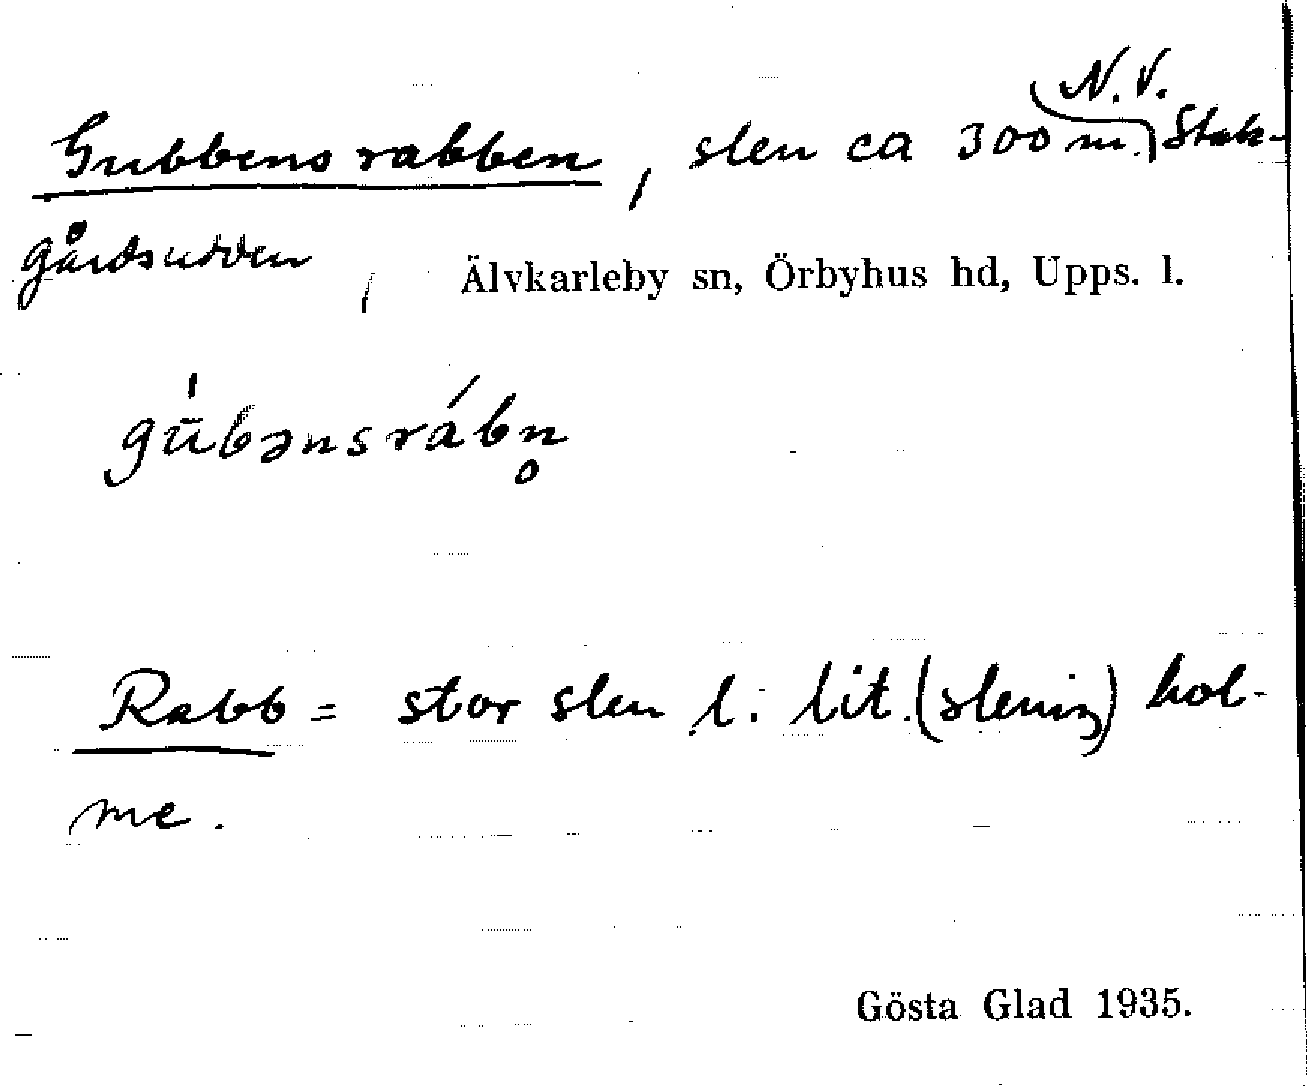 N.V.
Gubbens rabben, sten ca 300 m. Stak-
gårdsudden, Älvkarleby sn, Örbyhus hd, Upps. l.
gu̅́bənsrábn̥
Rabb = stor sten l. lit. (stenig) hol-
me.
Gösta Glad 1935.